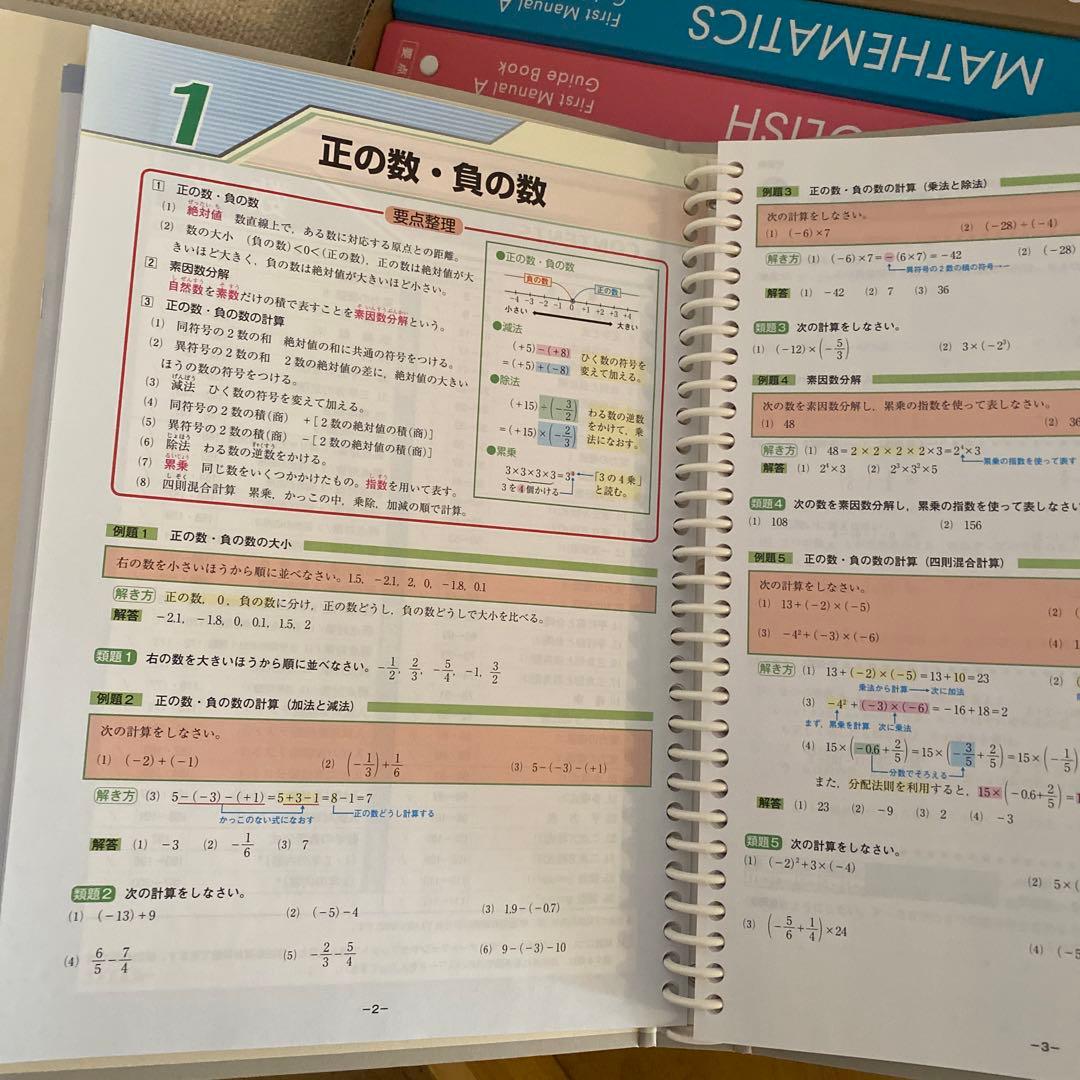 First Manual A
MATHEMATICS
First Manual A
Guide Book
LISH
1
正の数・負の数
要点整理
1 正の数・負の数
(1) 絶対値 数直線上で，ある数に対応する原点との距離。
(2) 数の大小 (負の数)<0<(正の数)，正の数は絶対値が大
きいほど大きく，負の数は絶対値が大きいほど小さい。
2 素因数分解
自然数を素数だけの積で表すことを素因数分解という。
3 正の数・負の数の計算
(1) 同符号の2数の和 絶対値の和に共通の符号をつける。
(2) 異符号の2数の和 2数の絶対値の差に，絶対値の大きい
ほうの数の符号をつける。
(3) 減法 ひく数の符号を変えて加える。
(4) 同符号の2数の積(商) +[2数の絶対値の積(商)]
(5) 異符号の2数の積(商) -[2数の絶対値の積(商)]
(6) 除法 わる数の逆数をかける。
(7) 累乗 同じ数をいくつかかけたもの。指数を用いて表す。
(8) 四則混合計算 累乗，かっこの中，乗除，加減の順で計算。
●正の数・負の数
負の数 正の数
-4 -3 -2 -1 0 +1 +2 +3 +4
小さい 大きい
●減法
(+5)-(+8) ひく数の符号を
=(+5)+(-8) 変えて加える。
●除法
(+15)÷(-3/2) わる数の逆数
=(+15)×(-2/3) をかけて，乗
法になおす。
●累乗
3×3×3×3=3⁴ 「3の4乗」
3を4個かける と読む。
例題1 正の数・負の数の大小
右の数を小さいほうから順に並べなさい。1.5, -2.1, 2, 0, -1.8, 0.1
解き方 正の数，0，負の数に分け，正の数どうし，負の数どうしで大小を比べる。
解答 -2.1, -1.8, 0, 0.1, 1.5, 2
類題1 右の数を大きいほうから順に並べなさい。-1/2, 2/3, -5/4, -1, 3/2
例題2 正の数・負の数の計算（加法と減法）
次の計算をしなさい。
(1) (-2)+(-1) (2) (-1/3)+1/6 (3) 5-(-3)-(+1)
解き方 (3) 5-(-3)-(+1)=5+3-1=8-1=7
かっこのない式になおす 正の数どうし計算する
解答 (1) -3 (2) -1/6 (3) 7
類題2 次の計算をしなさい。
(1) (-13)+9 (2) (-5)-4 (3) 1.9-(-0.7)
(4) 6/5-7/4 (5) -2/3-5/4 (6) 9-(-3)-10
-2-
例題3 正の数・負の数の計算（乗法と除法）
次の計算をしなさい。
(1) (-6)×7 (2) (-28)÷(-4)
解き方 (1) (-6)×7=-(6×7)=-42 (2) (-28)
異符号の2数の積の符号
解答 (1) -42 (2) 7 (3) 36
類題3 次の計算をしなさい。
(1) (-12)×(-5/3) (2) 3×(-2³)
例題4 素因数分解
次の数を素因数分解し，累乗の指数を使って表しなさい。
(1) 48 (2) 36
解き方 (1) 48=2×2×2×2×3=2⁴×3
累乗の指数を使って表す
解答 (1) 2⁴×3 (2) 2³×3²×5
類題4 次の数を素因数分解し，累乗の指数を使って表しなさい
(1) 108 (2) 156
例題5 正の数・負の数の計算（四則混合計算）
次の計算をしなさい。
(1) 13+(-2)×(-5) (2)
(3) -4²+(-3)×(-6) (4)
解き方 (1) 13+(-2)×(-5)=13+10=23 (2)
乗法から計算 次に加法
(3) -4²+(-3)×(-6)=-16+18=2
まず，累乗を計算 次に乗法
(4) 15×(-0.6+2/5)=15×(-3/5+2/5)=15×(-1/5)
分数でそろえる
また，分配法則を利用すると，15×(-0.6+2/5)=
解答 (1) 23 (2) -9 (3) 2 (4) -3
類題5 次の計算をしなさい。
(1) (-2)²+3×(-4) (2) 5×(
(3) (-5/6+1/4)×24 (4) (-5
-3-